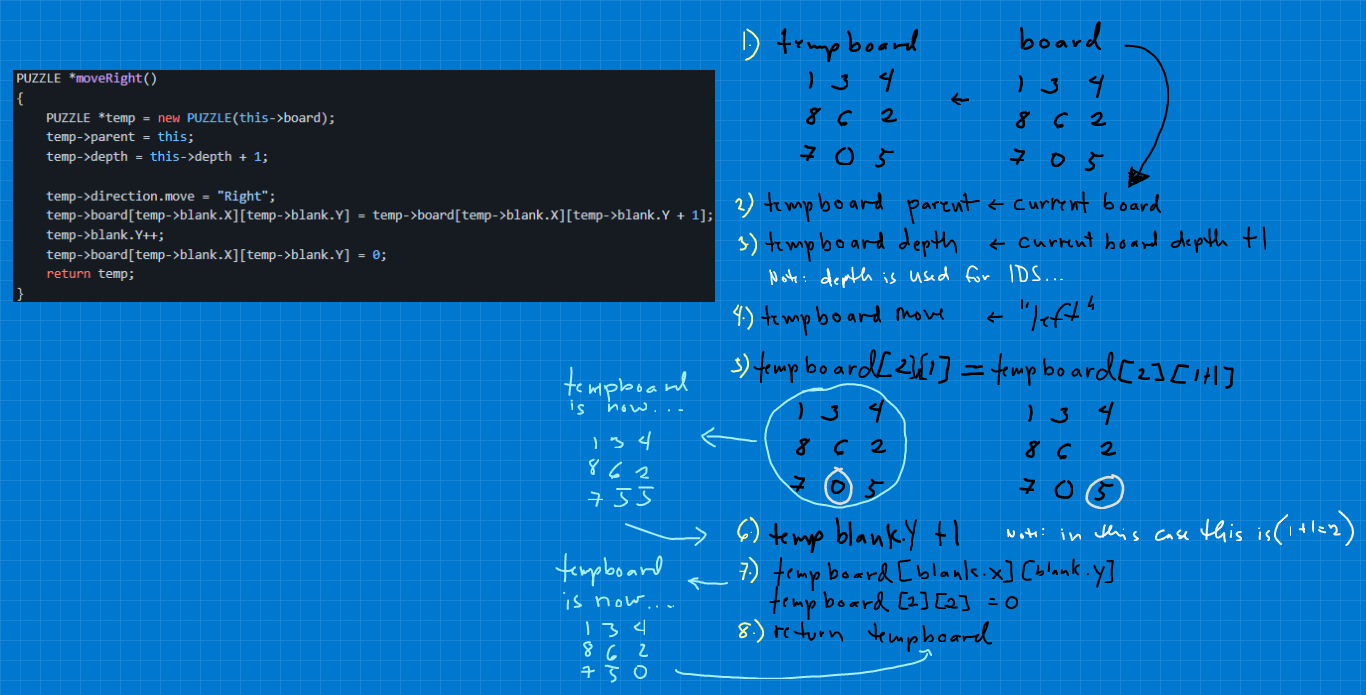 PUZZLE *moveRight()
{
PUZZLE *temp = new PUZZLE(this->board);
temp->parent = this;
temp->depth = this->depth + 1;
temp->direction.move = "Right";
temp->board[temp->blank.X][temp->blank.Y] = temp->board[temp->blank.X][temp->blank.Y + 1];
temp->blank.Y++;
temp->board[temp->blank.X][temp->blank.Y] = 0;
return temp;
}
1.) tempboard board
1 3 4 ← 1 3 4
8 6 2 8 6 2
7 0 5 7 0 5
2) tempboard parent ← current board
3) tempboard depth ← current board depth +1
Note: depth is used for IDS...
4.) tempboard move ← "left"
5) tempboard[2][1] = tempboard[2][1+1]
1 3 4 1 3 4
8 6 2 8 6 2
7 0 5 7 0 5
tempboard
is now...
1 3 4
8 6 2
7 5 5
6.) temp blank.Y +1 Note: in this case this is (1+1=2)
7.) tempboard[blank.x][blank.y]
tempboard[2][2] = 0
tempboard
is now...
1 3 4
8 6 2
7 5 0
8.) return tempboard